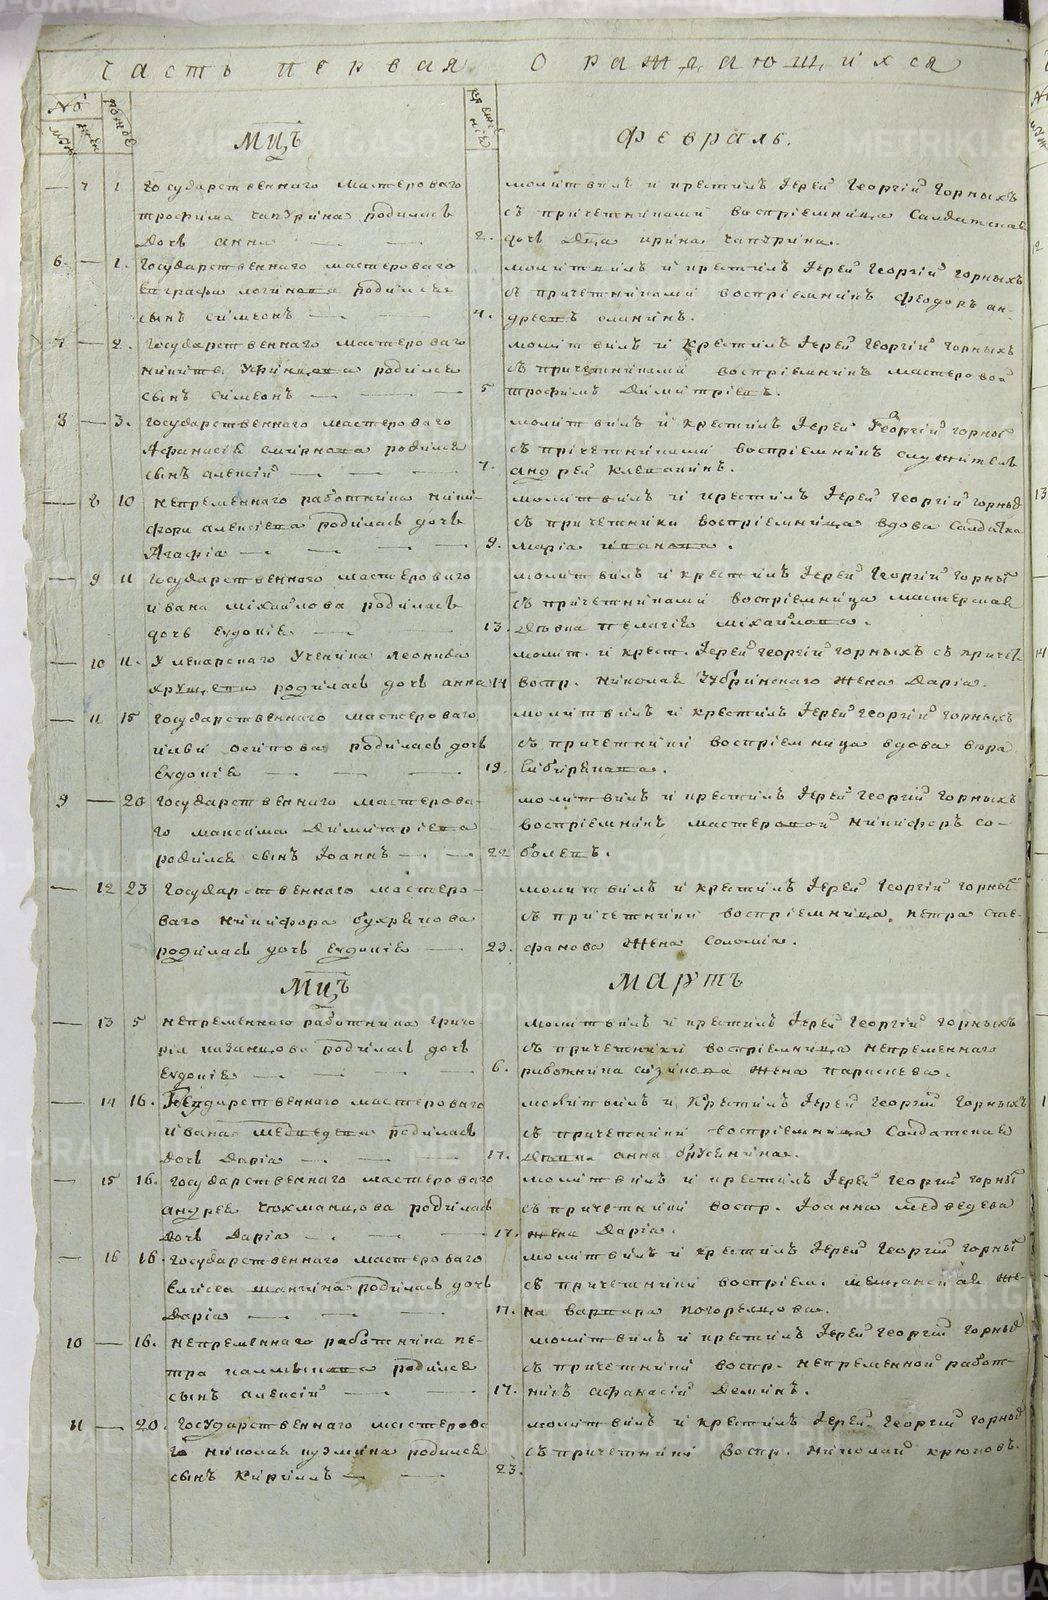 Часть первая О раждающихся
№
муж жен рожде креще ніе
Мцъ Февраль.
— 7 1 Государственнаго мастероваго
трофима чапурина родилась
дочь анна — —
молитвилъ и крестилъ Іерей Георгій Горныхъ
съ причетниками воспріемница Салдатская
2. дочь Дѣва ирина чапурина.
6. — 1. Государственнаго мастероваго
Евграфа логинова родился
сынъ симеонъ — —
молитвилъ и крестилъ Іерей Георгій горныхъ
съ причетниками воспріемникъ феодоръ ан-
4. дреевъ
7 — 2. Государственнаго мастероваго
никиты родился
сынъ симеонъ — —
молитвилъ и крестилъ Іерей Георгій горныхъ
съ причетниками воспріемникъ мастеровой
5 трофимъ Димитріевъ.
8 — 3. Государственнаго мастероваго
Афанасіе смирнова родился
сынъ алексій — — —
молитвилъ и крестилъ Іерей Георгій горны
съ причетниками воспріемникъ служитель
7. андрей Клепанинъ.
— 8 10 непременнаго работника ники-
фора алексіева родилась дочь
Агафіа — — —
молитвилъ и крестилъ Іерей Георгій горныхъ
съ причетники воспріемница вдова Салдатка
9. Маріа иванова.
— 9 11 Государственнаго мастероваго
ивана міхаилова родилась
дочь евдокіе — —
молитвилъ и крестилъ Іерей Георгій Горны
съ причетниками воспріемница мастерская
13. Дѣвка пелагіе міхаилова.
— 10 11. У лекарскаго ученика леонида
хрущева родилась дочь анна
молит. и крест. Іерей георгій горныхъ съ причет
14 воспр. николая Чубринскаго жена Даріа.
— 11 15 государственнаго мастероваго
ильи осипова родилась дочь
Евдокіе — — —
молитвилъ и крестилъ Іерей георгій горныхъ
съ причетники воспріемница вдова вера
19.
9 — 20 государственнаго мастерова-
го максима Димитріева
родился сынъ Іоаннъ — —
молитвилъ и крестилъ Іерей георгій Горныхъ
воспріемникъ мастеровой никифоръ со-
22 болевъ.
— 12 23 государственнаго мастеро-
ваго никифора бухрякова
родилась дочь евдокіе —
молитвилъ и крестилъ Іерей Георгій горны
съ причетники воспріемница, петра сте-
23. фанова жена соломіа.
Мцъ Мартъ
— 13 5 непременнаго работника григо
ріа казанцова родилась дочь
Евдокіе — — —
молитвилъ и крестилъ Іерей Георгій горныхъ
съ причетники воспріемница непременнаго
6. работника сизикова жена параскева.
— 14 16. Государственнаго мастероваго
ивана медведева родилась
дочь Даріа — — —
молитвилъ и Крестилъ Іерей Георгій Горныхъ
съ причетники воспріемница Салдатская
17. Дѣвка анна брусинина.
— 15 16. государственнаго мастероваго
андрея чохманцова родилась
дочь Даріа — — —
молитвилъ и крестилъ Іерей Георгій горны
съ причетники воспр. Іоанна медведева
17. жена Даріа.
— 16 16. государственнаго мастероваго
Елисея шангина родилась дочь
Даріа — — —
молитвилъ и крестилъ Іерей Георгій горны
съ причетники воспріем. мещанская же-
17. на варвара погорельцова.
10 — 16. непременнаго работника пе-
тра калмыкова родился
сынъ алексій — —
молитвилъ и крестилъ Іерей георгій горныхъ
съ причетники воспр. непременной работ-
17. никъ афанасій Деминъ.
11 — 20. Государственнаго мастерова
го николая кузмина родился
сынъ Кириллъ — —
молитвилъ и крестилъ Іерей Георгій горныхъ
съ причетники воспр. николай крюковъ.
23.
METRIKI.GASO-URAL.RU